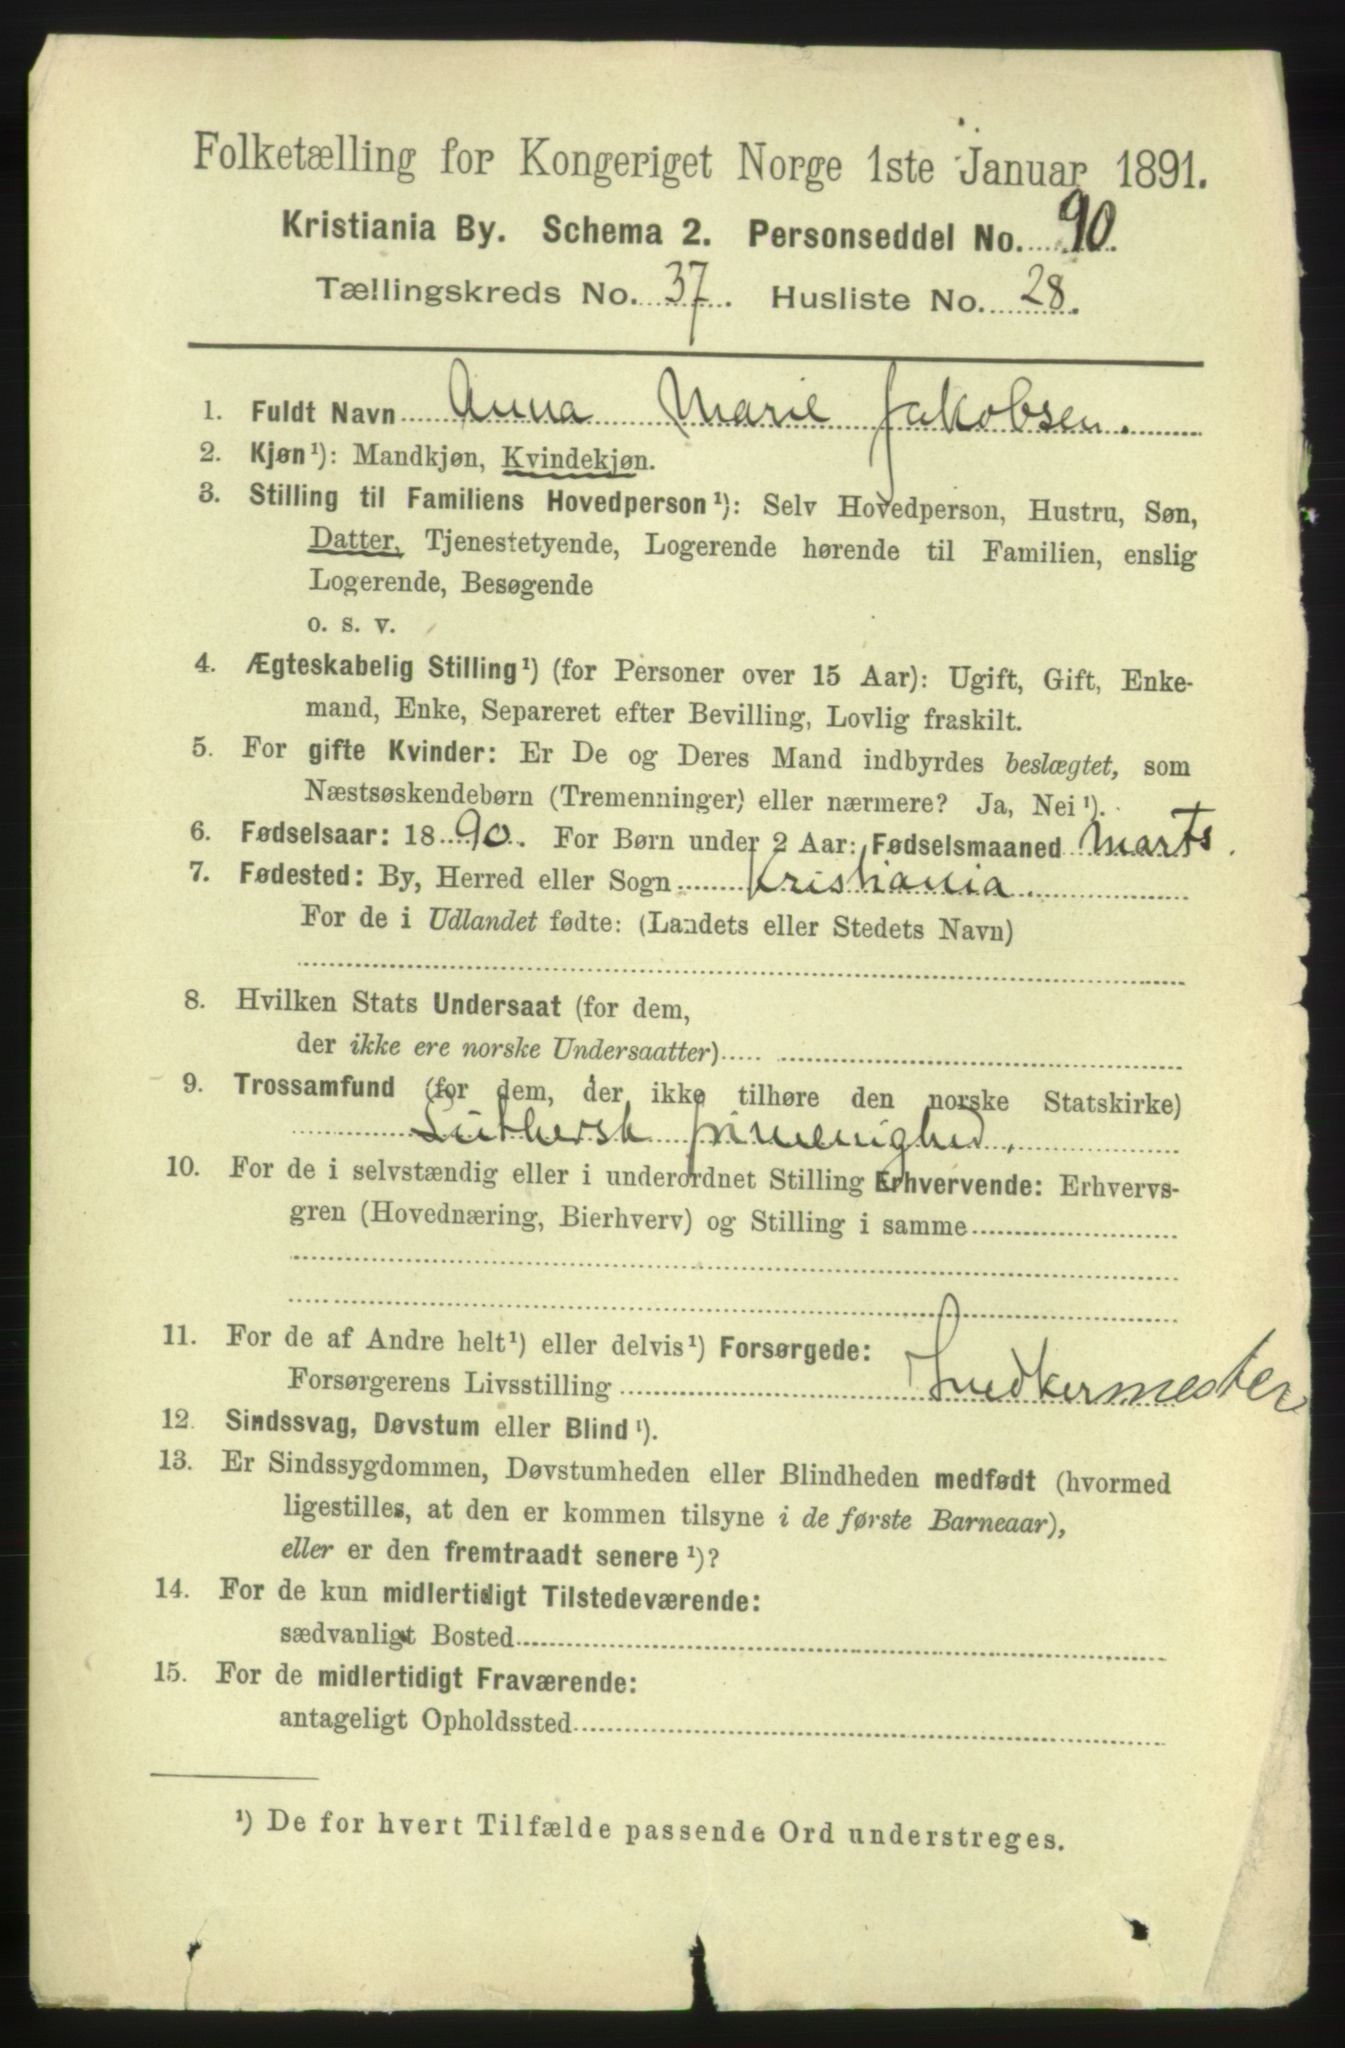 Folketælling for Kongeriget Norge 1ste Januar 1891.
Kristiania By. Schema 2. Personseddel No. 90.
Tællingskreds No. 37. Husliste No. 28.
1. Fuldt Navn Anna Marie Jakobsen.
2. Kjøn¹): Mandkjøn, Kvindekjøn.
3. Stilling til Familiens Hovedperson¹): Selv Hovedperson, Hustru, Søn,
Datter, Tjenestetyende, Logerende hørende til Familien, enslig
Logerende, Besøgende
o. s. v.
4. Ægteskabelig Stilling¹) (for Personer over 15 Aar): Ugift, Gift, Enke-
mand, Enke, Separeret efter Bevilling, Lovlig fraskilt.
5. For gifte Kvinder: Er De og Deres Mand indbyrdes beslægtet, som
Næstsøskendebørn (Tremenninger) eller nærmere? Ja, Nei¹).
6. Fødselsaar: 1890. For Børn under 2 Aar: Fødselsmaaned Marts.
7. Fødested: By, Herred eller Sogn Kristiania.
For de i Udlandet fødte: (Landets eller Stedets Navn)
8. Hvilken Stats Undersaat (for dem,
der ikke ere norske Undersaatter)
9. Trossamfund (for dem, der ikke tilhøre den norske Statskirke)
Luthersk frimenighed.
10. For de i selvstændig eller i underordnet Stilling Erhvervende: Erhvervs-
gren (Hovednæring, Bierhverv) og Stilling i samme
11. For de af Andre helt¹) eller delvis¹) Forsørgede:
Forsørgerens Livsstilling Snedkermester
12. Sindssvag, Døvstum eller Blind¹).
13. Er Sindssygdommen, Døvstumheden eller Blindheden medfødt (hvormed
ligestilles, at den er kommen tilsyne i de første Barneaar),
eller er den fremtraadt senere¹)?
14. For de kun midlertidigt Tilstedeværende:
sædvanligt Bosted
15. For de midlertidigt Fraværende:
antageligt Opholdssted
¹) De for hvert Tilfælde passende Ord understreges.